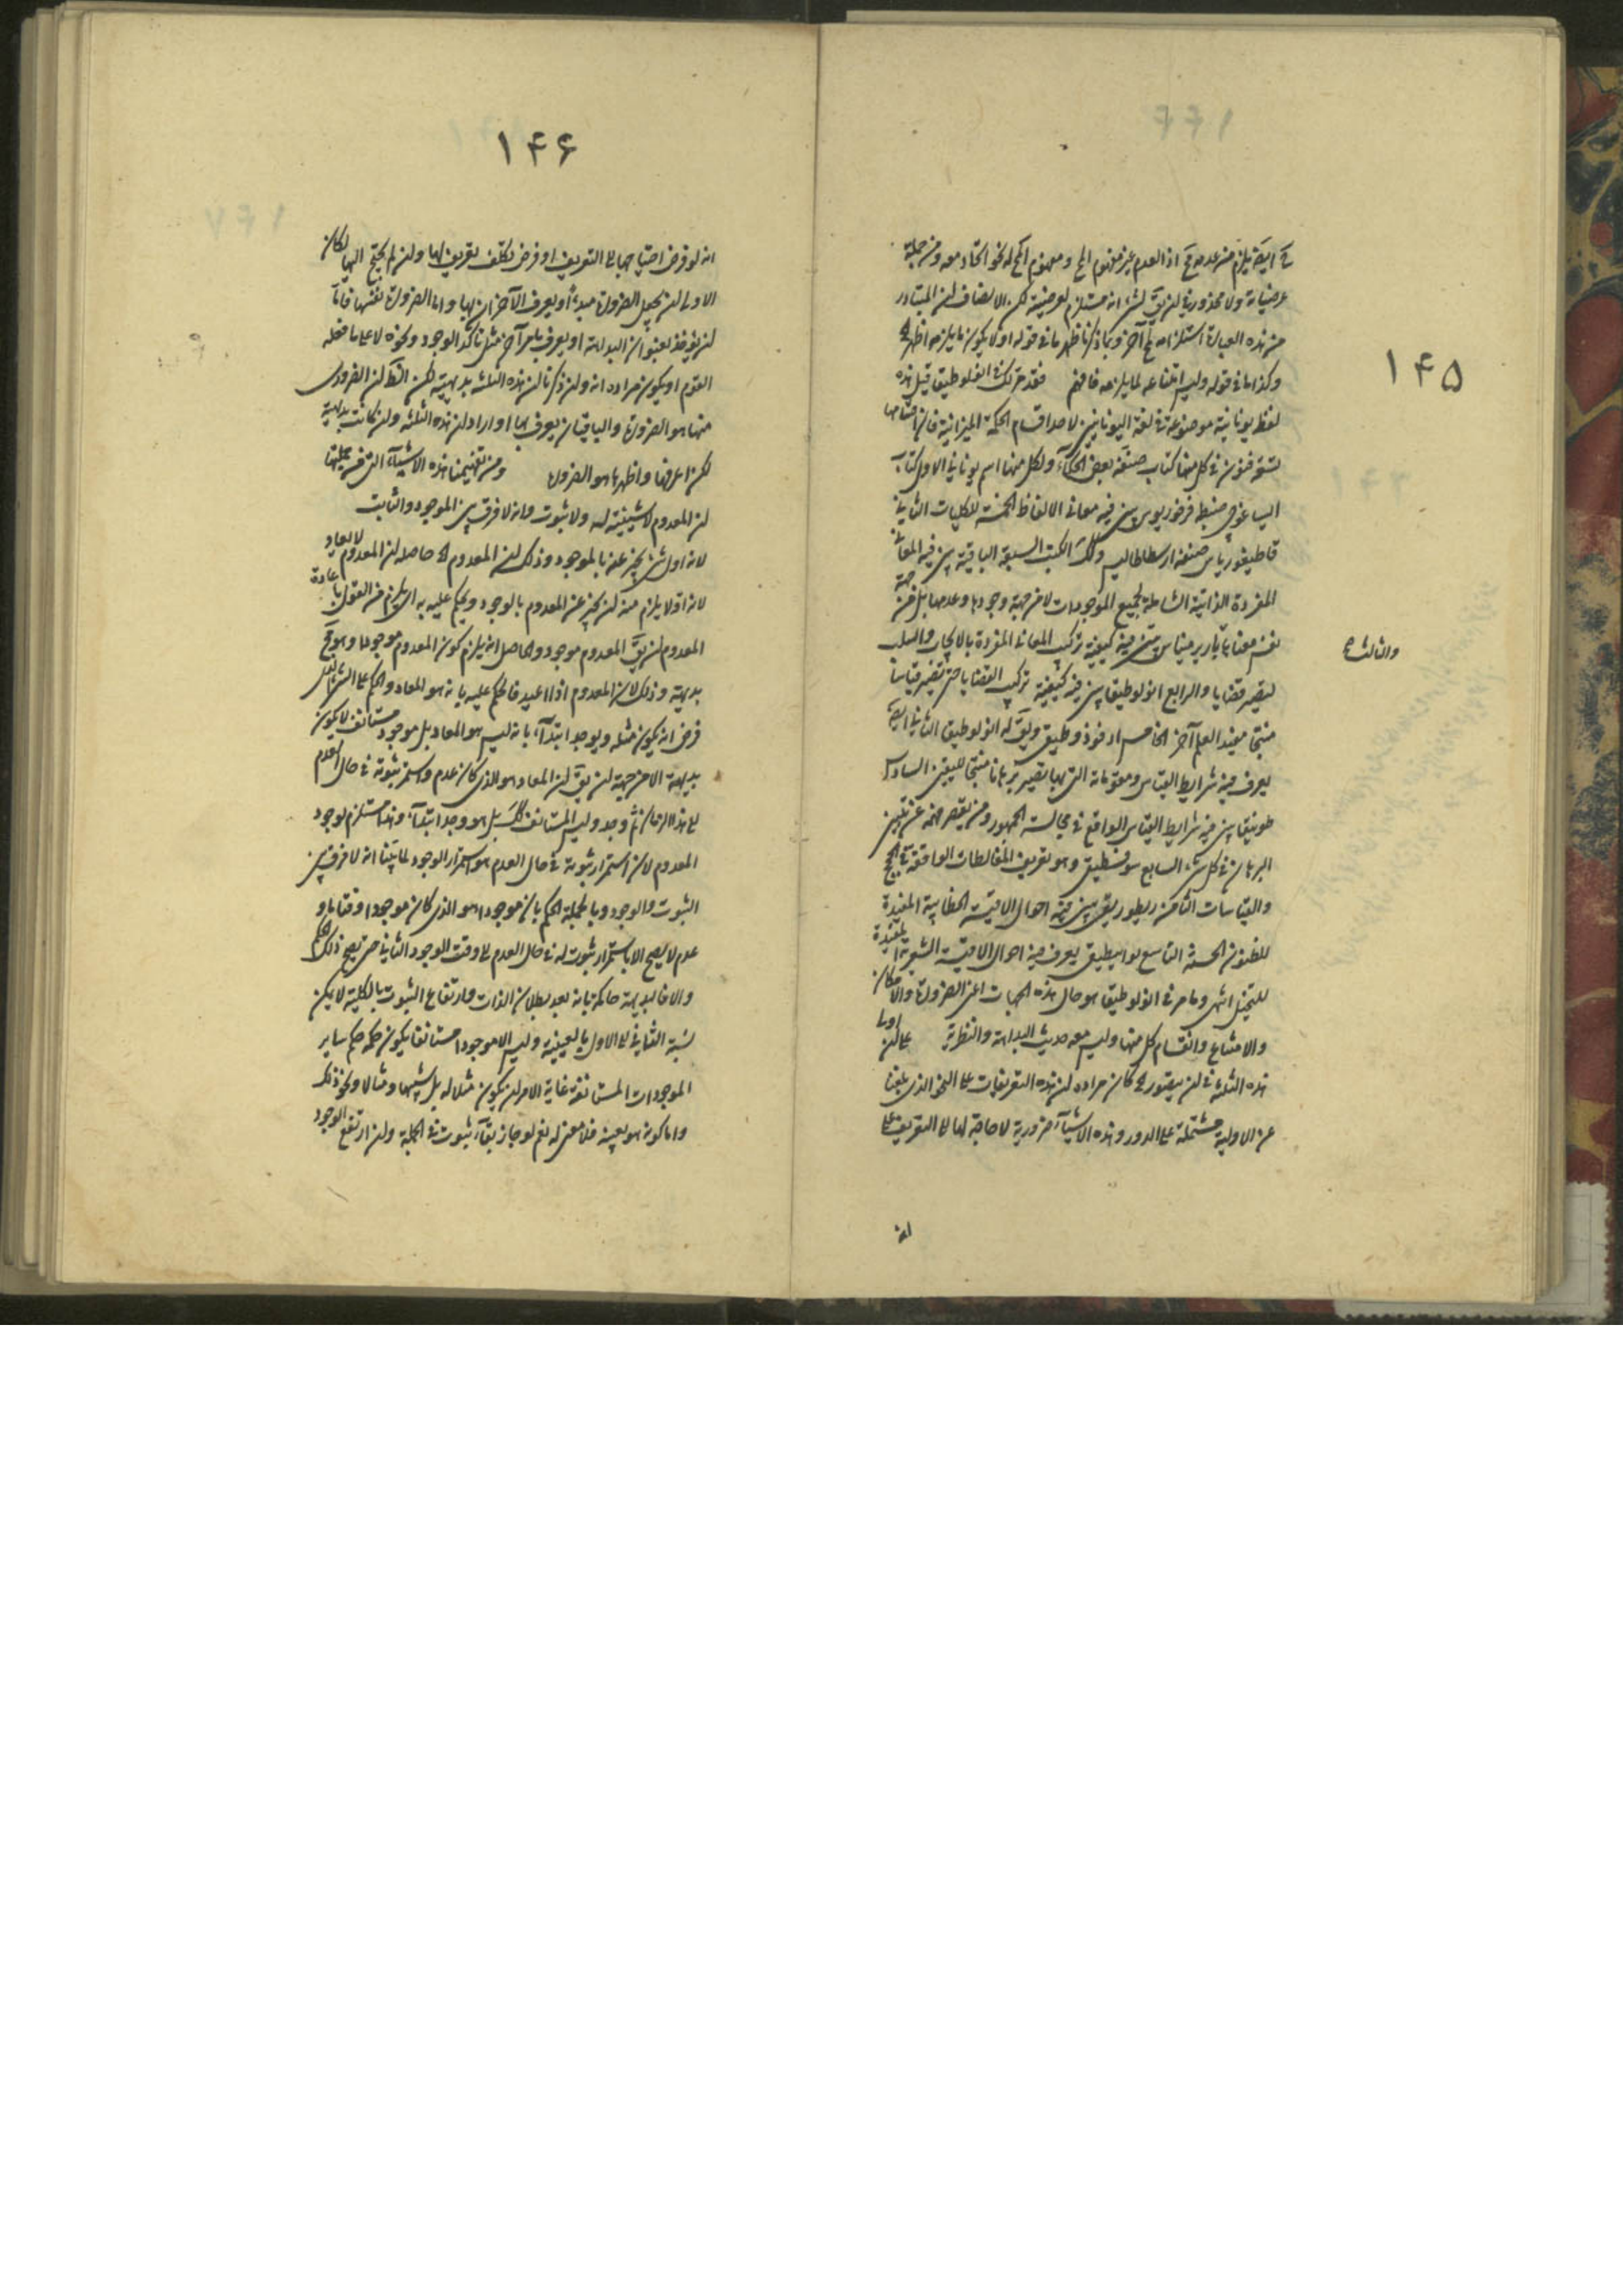 ۱۴۵
عرضياته ولا محذور في لن يق لشئ انه مستلزم لعرضيته لكن الانصاف لن المتبادر
من هذه العبارة استلزامه مح آخر وبما ذكرنا ظهر ما في قوله او لا يكون ما يلزمه اظهر
وكذا ما في قوله وليس امتناعه لما يلزمه فافهم فقد مر لك في انولوطيقا قيل هذه
لفظ يونانية موضوعة في لغة اليونانيين لاحد اقسام الحكمة الميزانية فان اقسامها
تسعة فنون في كل منها كتاب صنفه بعض الحكماء ولكل منها اسم يوناني الاول كتاب
ايساغوجي صنفه فرفوريوس بين فيه معاني الالفاظ الخمسة الكليات الثاني
قاطيغورياس صنفه ارسطاطاليس وكك الكتب السبعة الباقية بين فيه المعاني
المفردة الذاتية الشاملة لجميع الموجودات لا من جهة وجودها وعدمها بل من جهة
نفس معناها باريرميناس بين فيه كيفية تركيب المعاني المفردة بالايجاب والسلب
والثالث ح
ليصير قضايا والرابع انولوطيقا بين فيه كيفية تركيب القضايا حتى تصير قياسا
منتجا مفيد العلم آخر الخامس ادفوذوطيق ويق له انولوطيقا الثاني ايض
يعرف فيه شرايط القياس ومقدماته التي بها تصير برهانا منتجا لليقين السادس
طوبيقا بين فيه شرايط القياس الواقع في مجالسة الجمهور ومن يقصر فهمه عن تبيين
البرهان في كل شئ السابع سوفسطيق وهو تعريف المغالطات الواقعة في الحجج
والقياسات الثامن ريطوريق بين فيه احوال الاقيسة الخطابية المفيدة
للظنون الحسنة التاسع بواسيطيق يعرف فيه احوال الاقيسة الشعرية المفيدة
للتخيل انتهى وما مر في انولوطيقا هو حال هذه الجهات اعني الضرورة والامكان
والامتناع وانقسام كل منها وليس معه حديث البداهة والنظرية على لن اولى
هذه الثلثة في لن يتصور ح كان مراده لن هذه التعريفات على النحو الذي بلغنا
عن الاولية مشتملة على الدور وهذه الاشياء ضرورية لا حاجة لها الى التعريف على
انه
۱۴۶
انه لو فرض احتياجها الى التعريف او فرض تكلف تعريف لها ولن لم يحتج اليها لكان
الاولى لن يجعل الضرورة مبدءا ويعرف الآخران بها واما الضرورة نفسها فاما
لن يؤخذ بعنوان البداهة او يعرف بامر آخر مثل تاكد الوجود ونحوه لا على ما فعله
القوم او يكون مراده انه ولن ذكرنا لن هذه الثلثة بديهية لكن الظ لن الضروري
منها هو الضرورة والباقيان يعرف بها او اراد لن هذه الثلثة ولن كانت بديهية
لكن اعرفها واظهرها هو الضرورة ومن تفهيمنا هذه الاشياء التي من جملتها
لن المعدوم لا شيئية له ولا ثبوت وانه لا فرق بين الموجود والثابت
لانه اول شئ يخبر عنه بالموجود وذلك لن المعدوم اه حاصله لن المعدوم لا يعاد
لانه اولا يلزم منه لن يخبر عن المعدوم بالوجود ويحكم عليه به اي يلزم من القول باعادة
المعدوم لن يق المعدوم موجود والحاصل انه يلزم كون المعدوم موجودا وهو مح
بديهية وذلك لان المعدوم اذا اعيد فالحكم عليه بانه هو المعاد والحكم على الشئ الذي
فرض انه يكون مثله ويوجد ابتداء بانه ليس هو المعاد بل موجود مستانف لا يكون
بديهية الا من جهة لن يق لن المعاد هو الذي كان عدم واستمر ثبوته في حال العدم
الى هذا الزمان ثم وجد وليس المستانف كك بل هو وجد ابتداء وهذا مستلزم لوجود
المعدوم لان استمرار ثبوته في حال العدم هو استمرار الوجود لما بينا انه لا فرق بين
الثبوت والوجود وبالجملة الحكم بان موجودا هو الذي كان موجودا وقتا ما و
عدم لا يصح الا باستمرار ثبوت له في حال العدم الى وقت الوجود الثاني حتى يصح ذلك الحكم
والا فالبديهة حاكمة بانه بعد بطلان الذات وارتفاع الثبوت بالكلية لا يمكن
نسبة الثاني الى الاول بالعينية وليس الا موجودا مستانفا يكون حكمه حكم ساير
الموجودات المستانفة غاية الامر لن يكون مثلا له بل شبيها ومثالا ونحو ذلك
واما كونه هو بعينه فلا معنى له نعم لو جاز بقاء ثبوت في الجملة ولن ارتفع الوجود